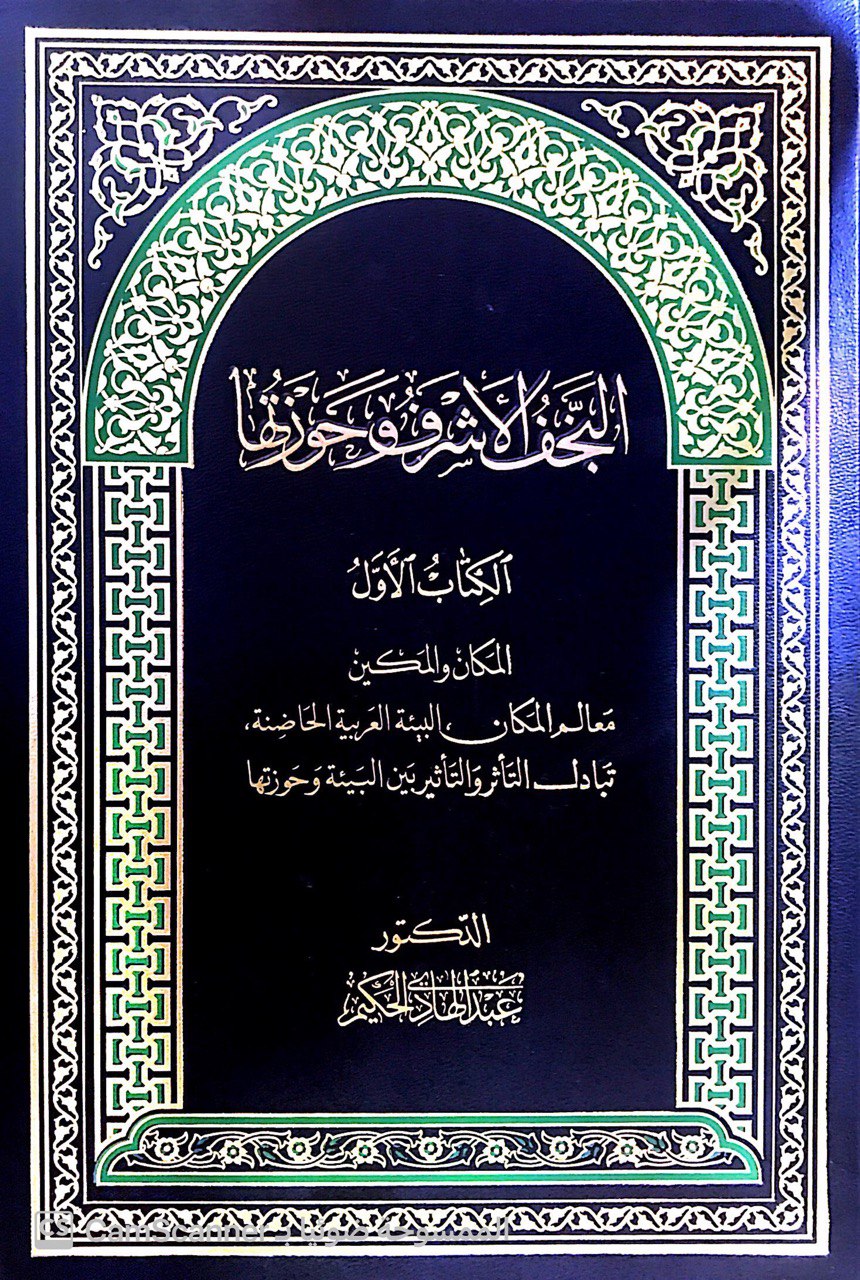 النَّجَفُ الأَشْرَفُ وَحَوْزَتُهَا
الكِتَابُ الأَوَّلُ
المَكَانُ وَالمَكين
مَعالم المَكان، البيئة العَربية الحَاضِنة،
تبَادل التَأثر وَالتَأثير بَين البَيئة وَحَوزتها
الدّكتور
عَبْدُ الهَادِي الحَكيم
الممسوحة ضوئيا بـ CamScanner